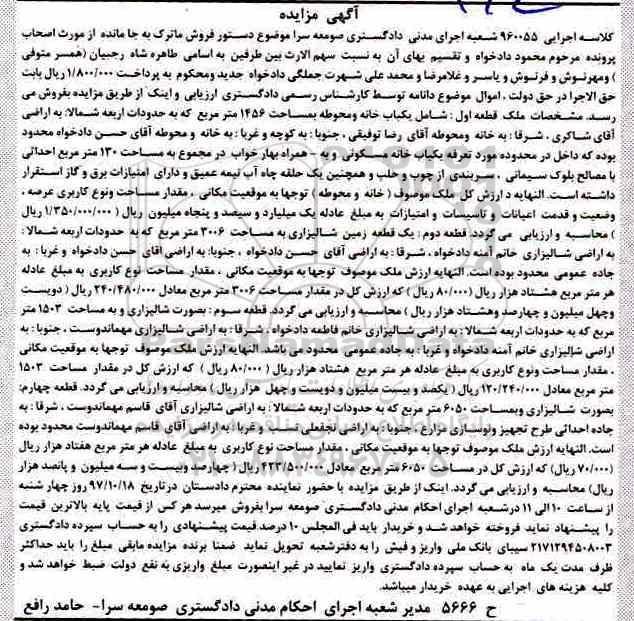 آگهی مزایده
کلاسه اجرایی ۹۶۰۰۵۵ شعبه اجرای مدنی دادگستری صومعه سرا موضوع دستور فروش ماترک به جا مانده از مورث اصحاب
پرونده مرحوم محمود دادخواه و تقسیم بهای آن به نسبت سهم الارث بین طرفین به اسامی طاهره شاه رجبیان (همسر متوفی
) ومهرنوش و فرنوش و یاسر و غلامرضا و محمد علی شهرت جملگی دادخواه جدید ومحکوم به پرداخت ۱/۸۰۰/۰۰۰ ریال بابت
حق الاجرا در حق دولت ، اموال موضوع دادنامه توسط کارشناس رسمی دادگستری ارزیابی و اینک از طریق مزایده بفروش می
رسد. مشخصات ملک قطعه اول : شامل یکباب خانه ومحوطه بمساحت ۱۴۵۶ متر مربع که به حدودات اربعه شمالا: به اراضی
آقای شاکری ، شرقا : به خانه ومحوطه آقای رضا توفیقی ، جنوبا : به کوچه و غربا : به خانه و محوطه آقای حسن دادخواه محدود
بوده که داخل در محدوده مورد تعرفه یکباب خانه مسکونی و به همراه بهار خواب در مجموع به مساحت ۱۳۰ متر مربع احداثی
با مصالح بلوک سیمانی ، سربندی از چوب و حلب و همچنین یک حلقه چاه آب نیمه عمیق و دارای امتیازات برق و گاز استقرار
داشته است. النهایه د ارزش کل ملک موصوف ( خانه و محوطه ) توجها به موقعیت مکانی ، مقدار مساحت ونوع کاربری عرصه ،
وضعیت و قدمت اعیانات و تاسیسات و امتیازات به مبلغ عادله یک میلیارد و سیصد و پنجاه میلیون ریال ( ۱/۳۵۰/۰۰۰/۰۰۰ ریال
) محاسبه و ارزیابی می گردد. قطعه دوم : یک قطعه زمین شالیزاری به مساحت ۳۰۰۶ متر مربع که به حدودات اربعه شمالا :
به اراضی شالیزاری خانم آمنه دادخواه ، شرقا : به اراضی آقای حسن دادخواه ، جنوبا: به اراضی اقای حسن دادخواه و غربا : به
جاده عمومی محدود بوده است. النهایه ارزش ملک موصوف توجها به موقعیت مکانی ، مقدار مساحت نوع کاربری به مبلغ عادله
هر متر مربع هشتاد هزار ریال (۸۰/۰۰۰ ریال ) که ارزش کل در مقدار مساحت ۳۰۰۶ متر مربع معادل ۲۴۰/۴۸۰/۰۰۰ ریال ( دویست
وچهل میلیون و چهارصد وهشتاد هزار ریال ) محاسبه و ارزیابی می گردد. قطعه سوم : بصورت شالیزاری و به مساحت ۱۵۰۳ متر
مربع که به حدودات اربعه شمالا : به اراضی شالیزاری خانم فاطمه دادخواه ، شرقا : به اراضی شالیزاری مهماندوست ، جنوبا : به
اراضی شالیزاری خانم آمنه دادخواه و غربا : به جاده عمومی محدود می باشد. النهایه ارزش ملک موصوف توجها به موقعیت مکانی
، مقدار مساحت ونوع کاربری به مبلغ عادله هر متر مربع هشتاد هزار ریال ( ۸۰/۰۰۰ ریال ) که ارزش کل در مقدار مساحت ۱۵۰۳
متر مربع معادل ۱۲۰/۲۴۰/۰۰۰ ریال ( یکصد و بیست میلیون و دویست و چهل هزار ریال ) محاسبه و ارزیابی می گردد. قطعه چهارم:
بصورت شالیزاری وبمساحت ۶۰۵۰ متر مربع که به حدودات اربعه شمالا : به اراضی شالیزاری آقای قاسم مهماندوست ، شرقا : به
جاده احداثی طرح تجهیز ونوسازی مزارع، جنوبا : به اراضی نجفعلی نصب و غربا : به اراضی آقای قاسم مهماندوست محدود بوده
است. النهایه ارزش ملک موصوف توجها به موقعیت مکانی ، مقدار مساحت نوع کاربری به مبلغ عادله هر متر مربع هفتاد هزار ریال
(۷۰/۰۰۰ ریال) که ارزش کل در مساحت ۶۰۵۰ متر مربع معادل ۴۲۳/۵۰۰/۰۰۰ ریال ( چهارصد وبیست و سه میلیون و پانصد هزار
ریال) محاسبه و ارزیابی می گردد. اینک از طریق مزایده با حضور نماینده محترم دادستان درتاریخ ۹۷/۱۰/۱۸ روز چهار شنبه
از ساعت ۱۰ الی ۱۱ درشعبه اجرای احکام مدنی دادگستری صومعه سرا بفروش میرسد هر کس از قیمت پایه بالاترین قیمت
را پیشنهاد نماید فروخته خواهد شد و خریدار باید فی المجلس ۱۰ درصد قیمت پیشنهادی را به حساب سپرده دادگستری
۲۱۷۱۲۹۴۵۰۸۰۰۳ سیبای بانک ملی واریز و فیش را به دفترشعبه تحویل نماید ضمنا برنده مزایده مابقی مبلغ را باید حداکثر
ظرف مدت یک ماه به حساب سپرده دادگستری واریز نمایید در غیر اینصورت مبلغ واریزی به نفع دولت ضبط خواهد شد و
کلیه هزینه های اجرایی به عهده خریدار میباشد.
ح ۵۶۶۶ مدیر شعبه اجرای احکام مدنی دادگستری صومعه سرا- حامد رافع